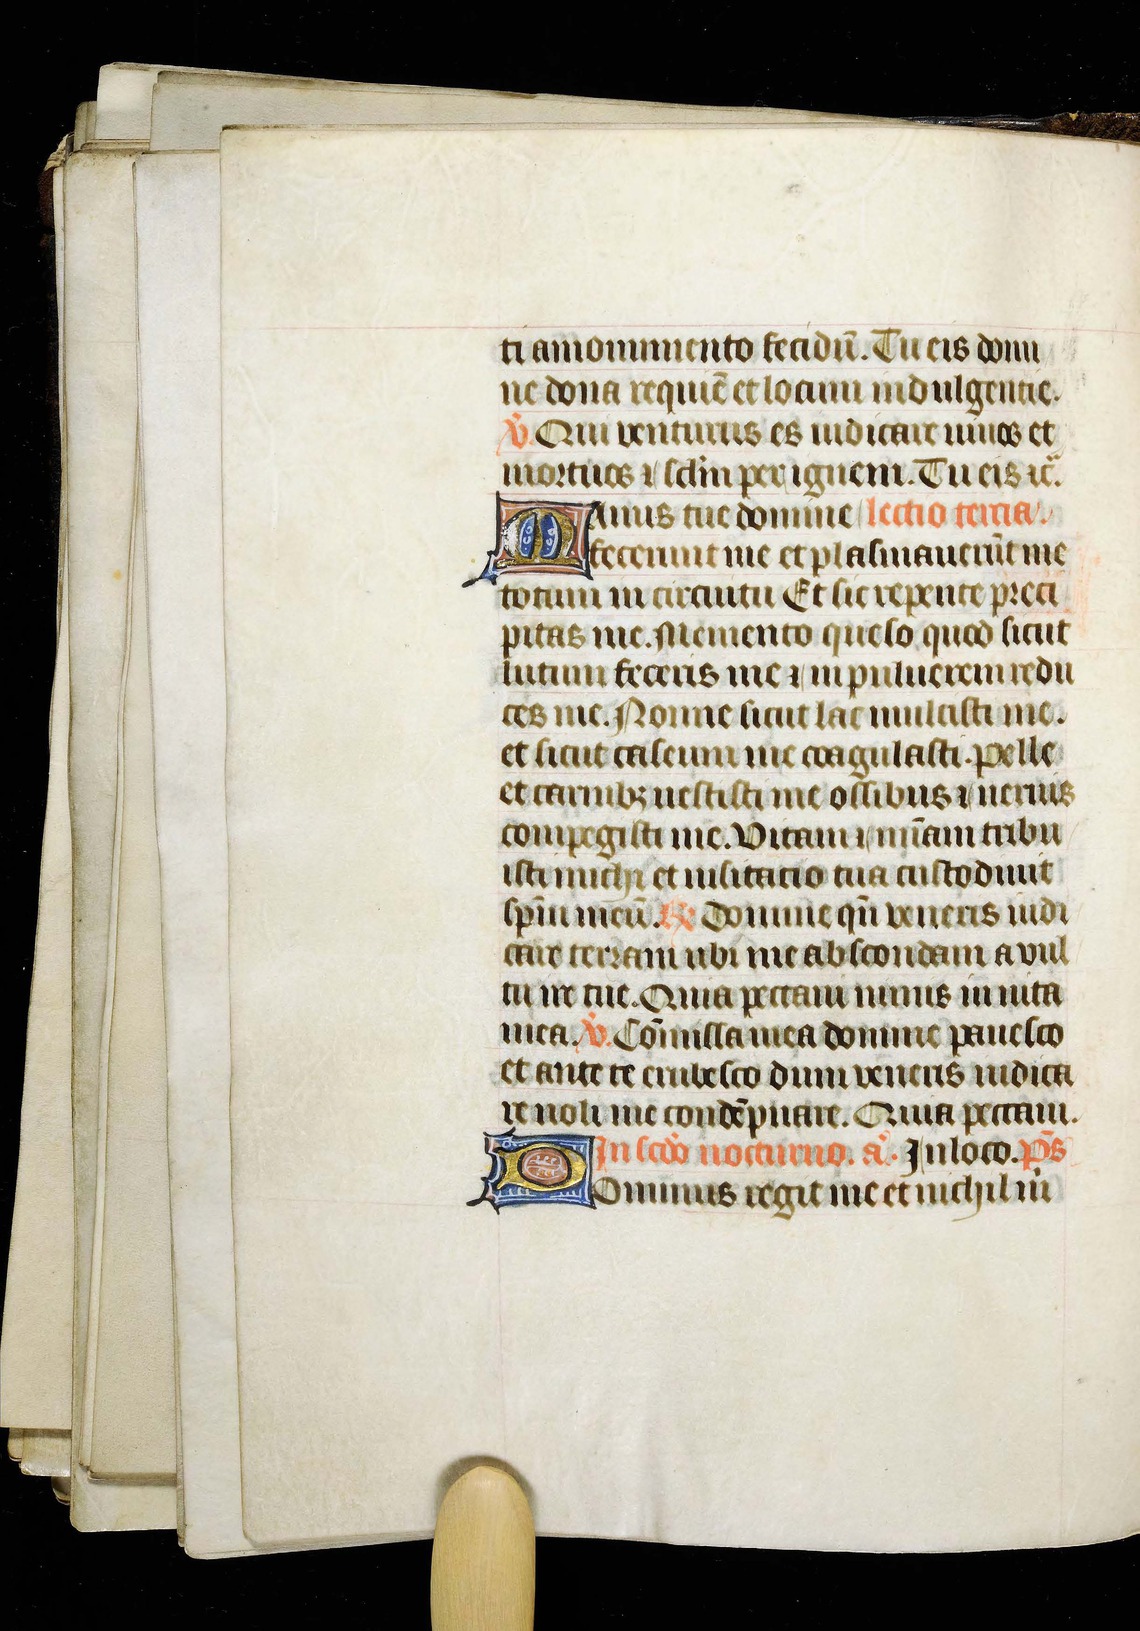 ti a monumento fetidū. Tu eis domi
ne dona requiē et locum indulgentie.
V̓. Qui venturus es iudicare uiuos et
mortuos ⁊ sclm̄ per ignem. Tu eis ⁊c̄.
Manus tue domine lectio tercia.
fecerunt me et plasmauerūt me
totum in circuitu Et sic repente preci
pitas me. Memento queso quod sicut
lutum feceris me ⁊ in puluerem redu
ces me. Nonne sicut lac mulcisti me.
et sicut caseum me coagulasti. Pelle
et carnibꝫ uestisti me ossibus ⁊ neruis
compegisti me. Vitam ⁊ mīam tribu
isti michi et uisitatio tua custodiuit
spm̄ meū. ℟ Domine qn̄ veneris iudi
care terram ubi me abscondam a vul
tu ire tue. Quia peccaui nimis in uita
mea. V̓. Cōmissa mea domine pauesco
et ante te erubesco dum veneris iudica
re noli me condēpnare. Quia peccaui.
In scdo nocturno. a. In loco. p̄s
Dominus regit me et nichil m̄